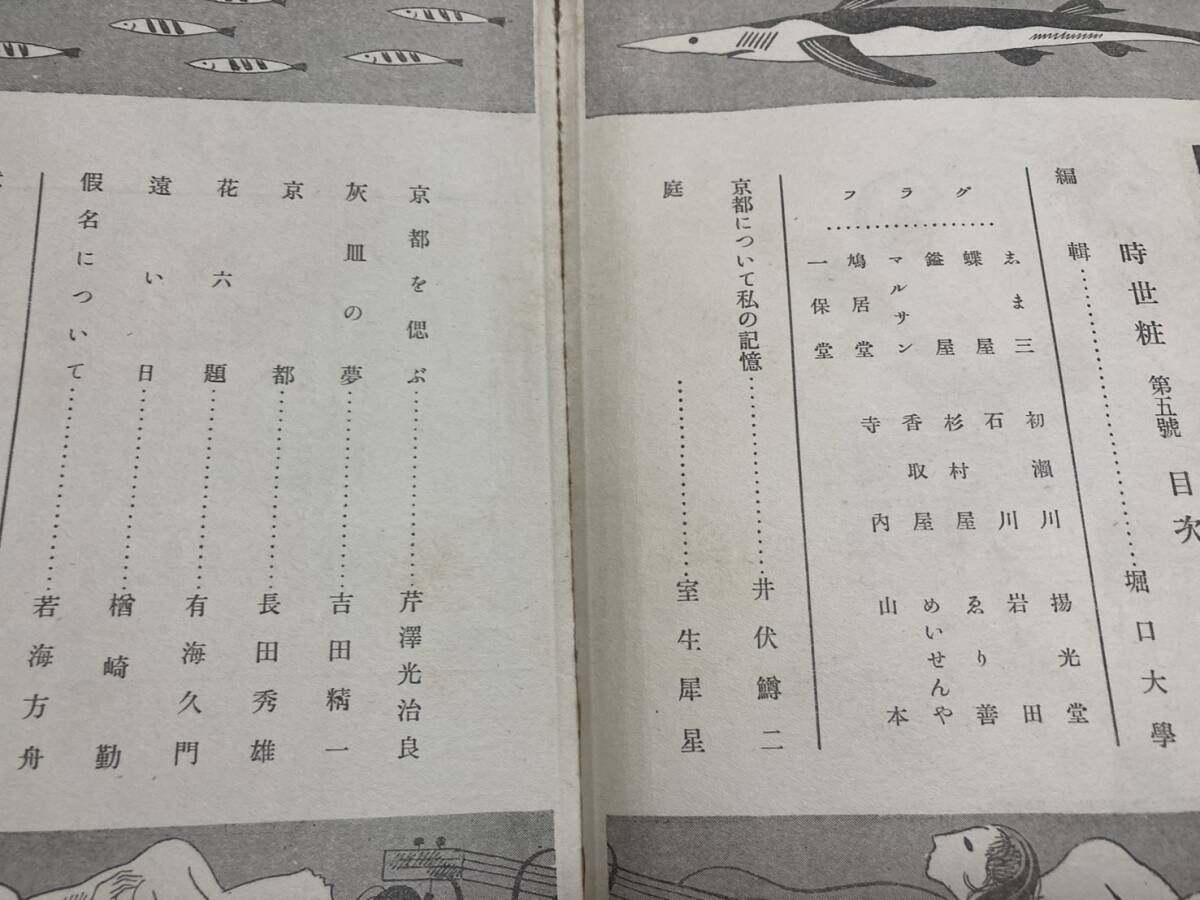 時世粧 第五號 目次
編輯…………堀口大學
グラフ
ゑま三 初瀬川 揚光堂
蝶屋 石川 岩田
鎰屋 杉村屋 ゑり善
マルサン 香取屋 めいせんや
鳩居堂 寺内 山本
一保堂
京都について私の記憶…………井伏鱒二
庭…………室生犀星
京都を偲ぶ…………芹澤光治良
灰皿の夢…………吉田精一
京都…………長田秀雄
花六題…………有海久門
遠い日…………楢崎勤
假名について…………若海方舟